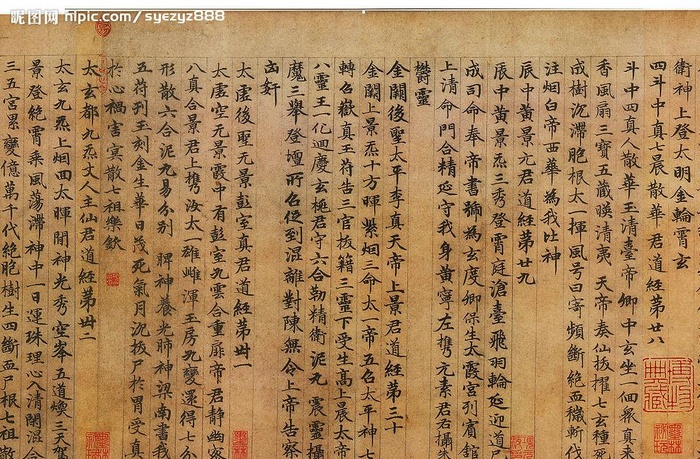 昵图网 nipic.com/syezyz888
衛神上登太明金輪霄玄
四斗中真七晨散華君道經第廿八
斗中四真人散華玉清臺帝卿中玄坐一個眾真来
香風扇三寶五藏暎清夷 天帝奏仙拔擢七玄種死
成樹沉滯胞根太一揮風号曰寄頻斷絕血穢斬伐
注烟白帝西華為我比神
辰中黃景元君道經第廿九
辰中黃景炁三秀登霄庭滄臺飛羽輪延迎道尸
成司命奉帝書號為玄度卿保生太霞宮列賓舘
上清命門合精延守我身黃寧左擕元素君右攝
鬱靈
金闕後聖太平李真天帝上景君道經第三十
金闕上景炁十方暉紫烟三命太一帝五召太平神七
轉召嶽真玉符告三官拔籍三靈下受生高上晨太帝
八靈王一化迴慶玄極君守六合勒精衛泥九震靈攝
魔三舉登壇所名到混離對陳無令上帝告察
凶奸
太虛後聖元景彭室真君道經第卅一
太虛空元景霞中有彭室九雲合重扉帝君静幽寥
八真合景君上擕汝太一雄雌渾玉房九變還得七分
形散六合泥九易分别 脾神養光肺神梁南書我
五符刊玉刻金生華日茂死氣月沉拔尸於胃受真
於心禍害寘散七祖樂欽
太玄都九炁丈人主仙君道經第卅二
太玄九炁上烟四太暉開神光秀空峯五道煙三天駕
景登絕霄乘風蕩滯神中一日運珠理心入清閑混合
三五宮累變億萬千代絕胞樹生四斷血尸根七祖散